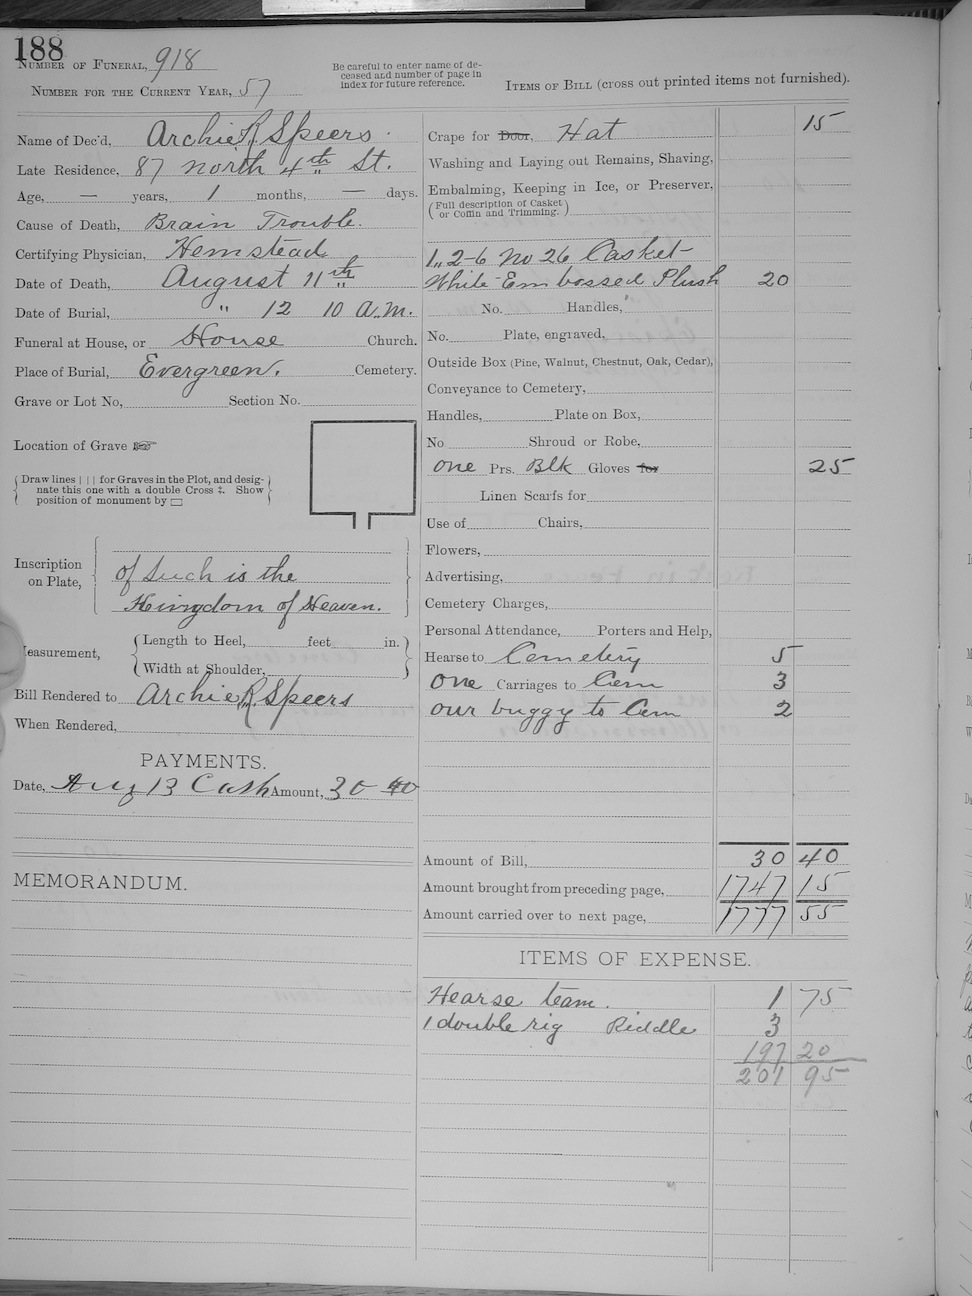 188
NUMBER OF FUNERAL, 918
NUMBER FOR THE CURRENT YEAR, 57
Be careful to enter name of de-
ceased and number of page in
index for future reference.
ITEMS OF BILL (cross out printed items not furnished).
Name of Dec'd, Archie R. Speers
Late Residence, 87 North 4th St.
Age, — years, 1 months, — days.
Cause of Death, Brain Trouble.
Certifying Physician, Hemstead
Date of Death, August 11th
Date of Burial, " 12 10 A.M.
Funeral at House, or House Church.
Place of Burial, Evergreen. Cemetery.
Grave or Lot No, Section No.
Location of Grave ☞
Draw lines | | | for Graves in the Plot, and desig-
nate this one with a double Cross ‡. Show
position of monument by ▭
Inscription
on Plate,
of Such is the
Kingdom of Heaven.
Measurement,
Length to Heel, feet in.
Width at Shoulder,
Bill Rendered to Archie R. Speers
When Rendered,
PAYMENTS.
Date, Aug 13 Cash Amount, 30 40
MEMORANDUM.
Crape for Door, Hat 15
Washing and Laying out Remains, Shaving,
Embalming, Keeping in Ice, or Preserver,
(Full description of Casket
or Coffin and Trimming.)
1,, 2-6 No 26 Casket
White Embossed Plush 20
No. Handles,
No. Plate, engraved,
Outside Box (Pine, Walnut, Chestnut, Oak, Cedar),
Conveyance to Cemetery,
Handles, Plate on Box,
No Shroud or Robe,
one Prs. Blk Gloves for 25
Linen Scarfs for
Use of Chairs,
Flowers,
Advertising,
Cemetery Charges,
Personal Attendance, Porters and Help,
Hearse to Cemetery 5
One Carriages to Cem 3
our buggy to Cem 2
Amount of Bill, 30 40
Amount brought from preceding page, 1747 15
Amount carried over to next page, 1777 55
ITEMS OF EXPENSE.
Hearse team. 1 75
1 double rig Riddle 3
197 20
201 95